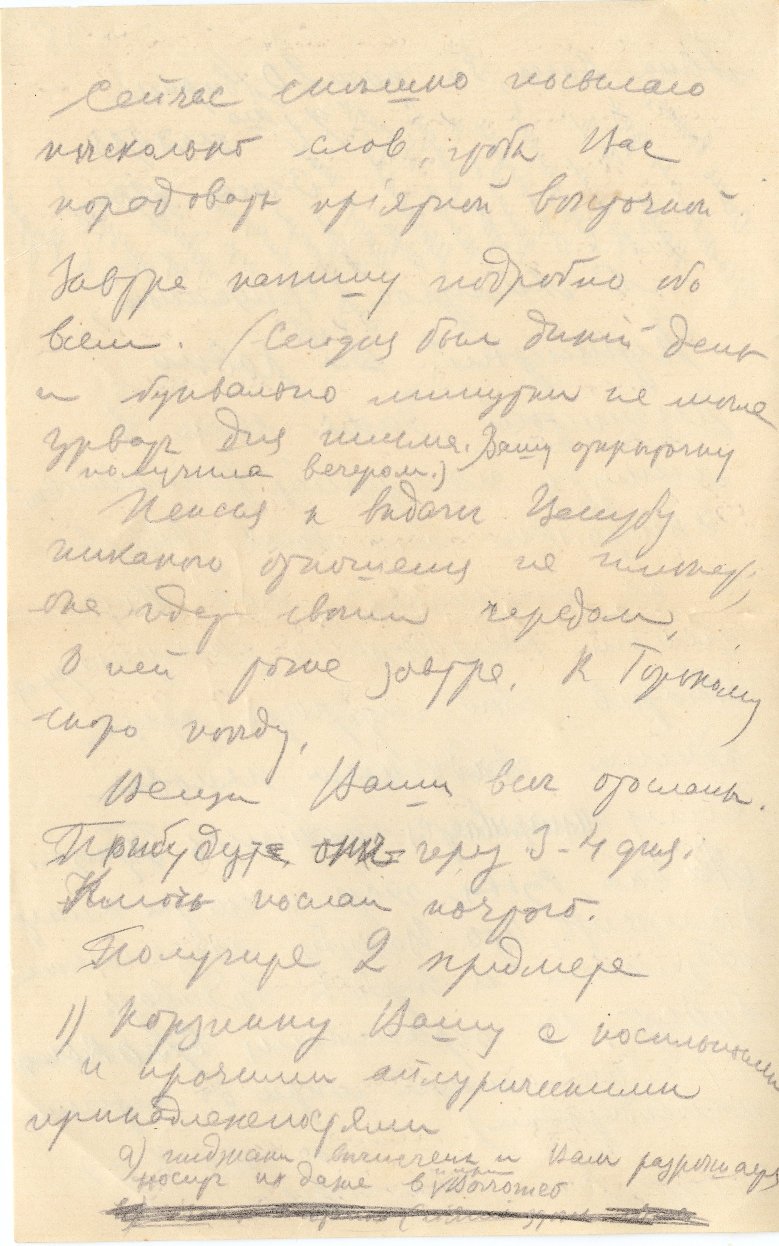 Сейчас спешно посылаю
несколько слов, чтобы Вас
порадовать приятной весточкой.
Завтра напишу подробно обо
всем. (Сегодня был дикий день
и буквально минутки не могла
урвать для письма. Вашу открыточку
получила вечером.)
Пенсия к выдаче Цекубу
никакого отношения не имеет,
она идет своим чередом.
О ней тоже завтра. К Горькому
скоро пойду.
Вещи Ваши все отосланы.
Прибудут они через 3-4 дня.
послан почтой.
Получите 2 предмета
1) Корзинку Вашу с носильными
и прочими
принадлежностями
а) пиджаки вычищены и Вам разрешается
носить их даже в